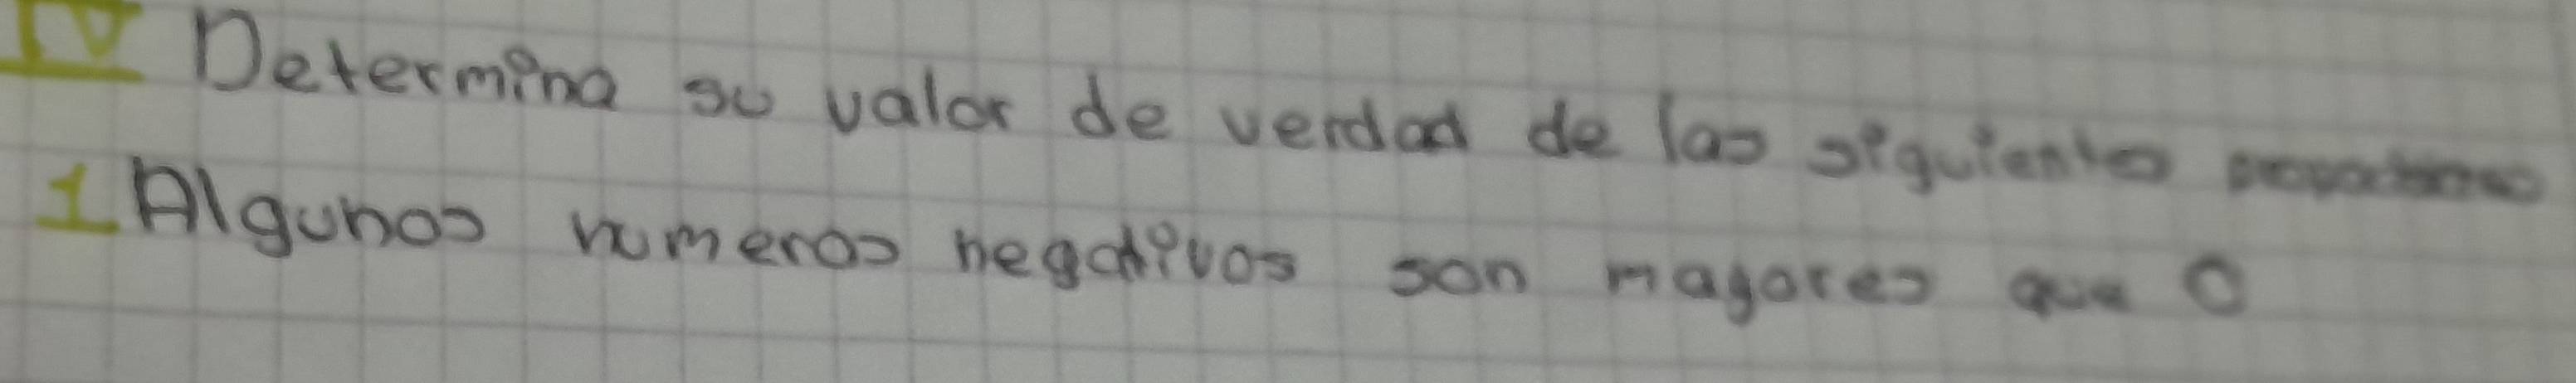 IV Determina su valor de verdad de las siguientes
1 Algunos numeros negativos son mayores que 0